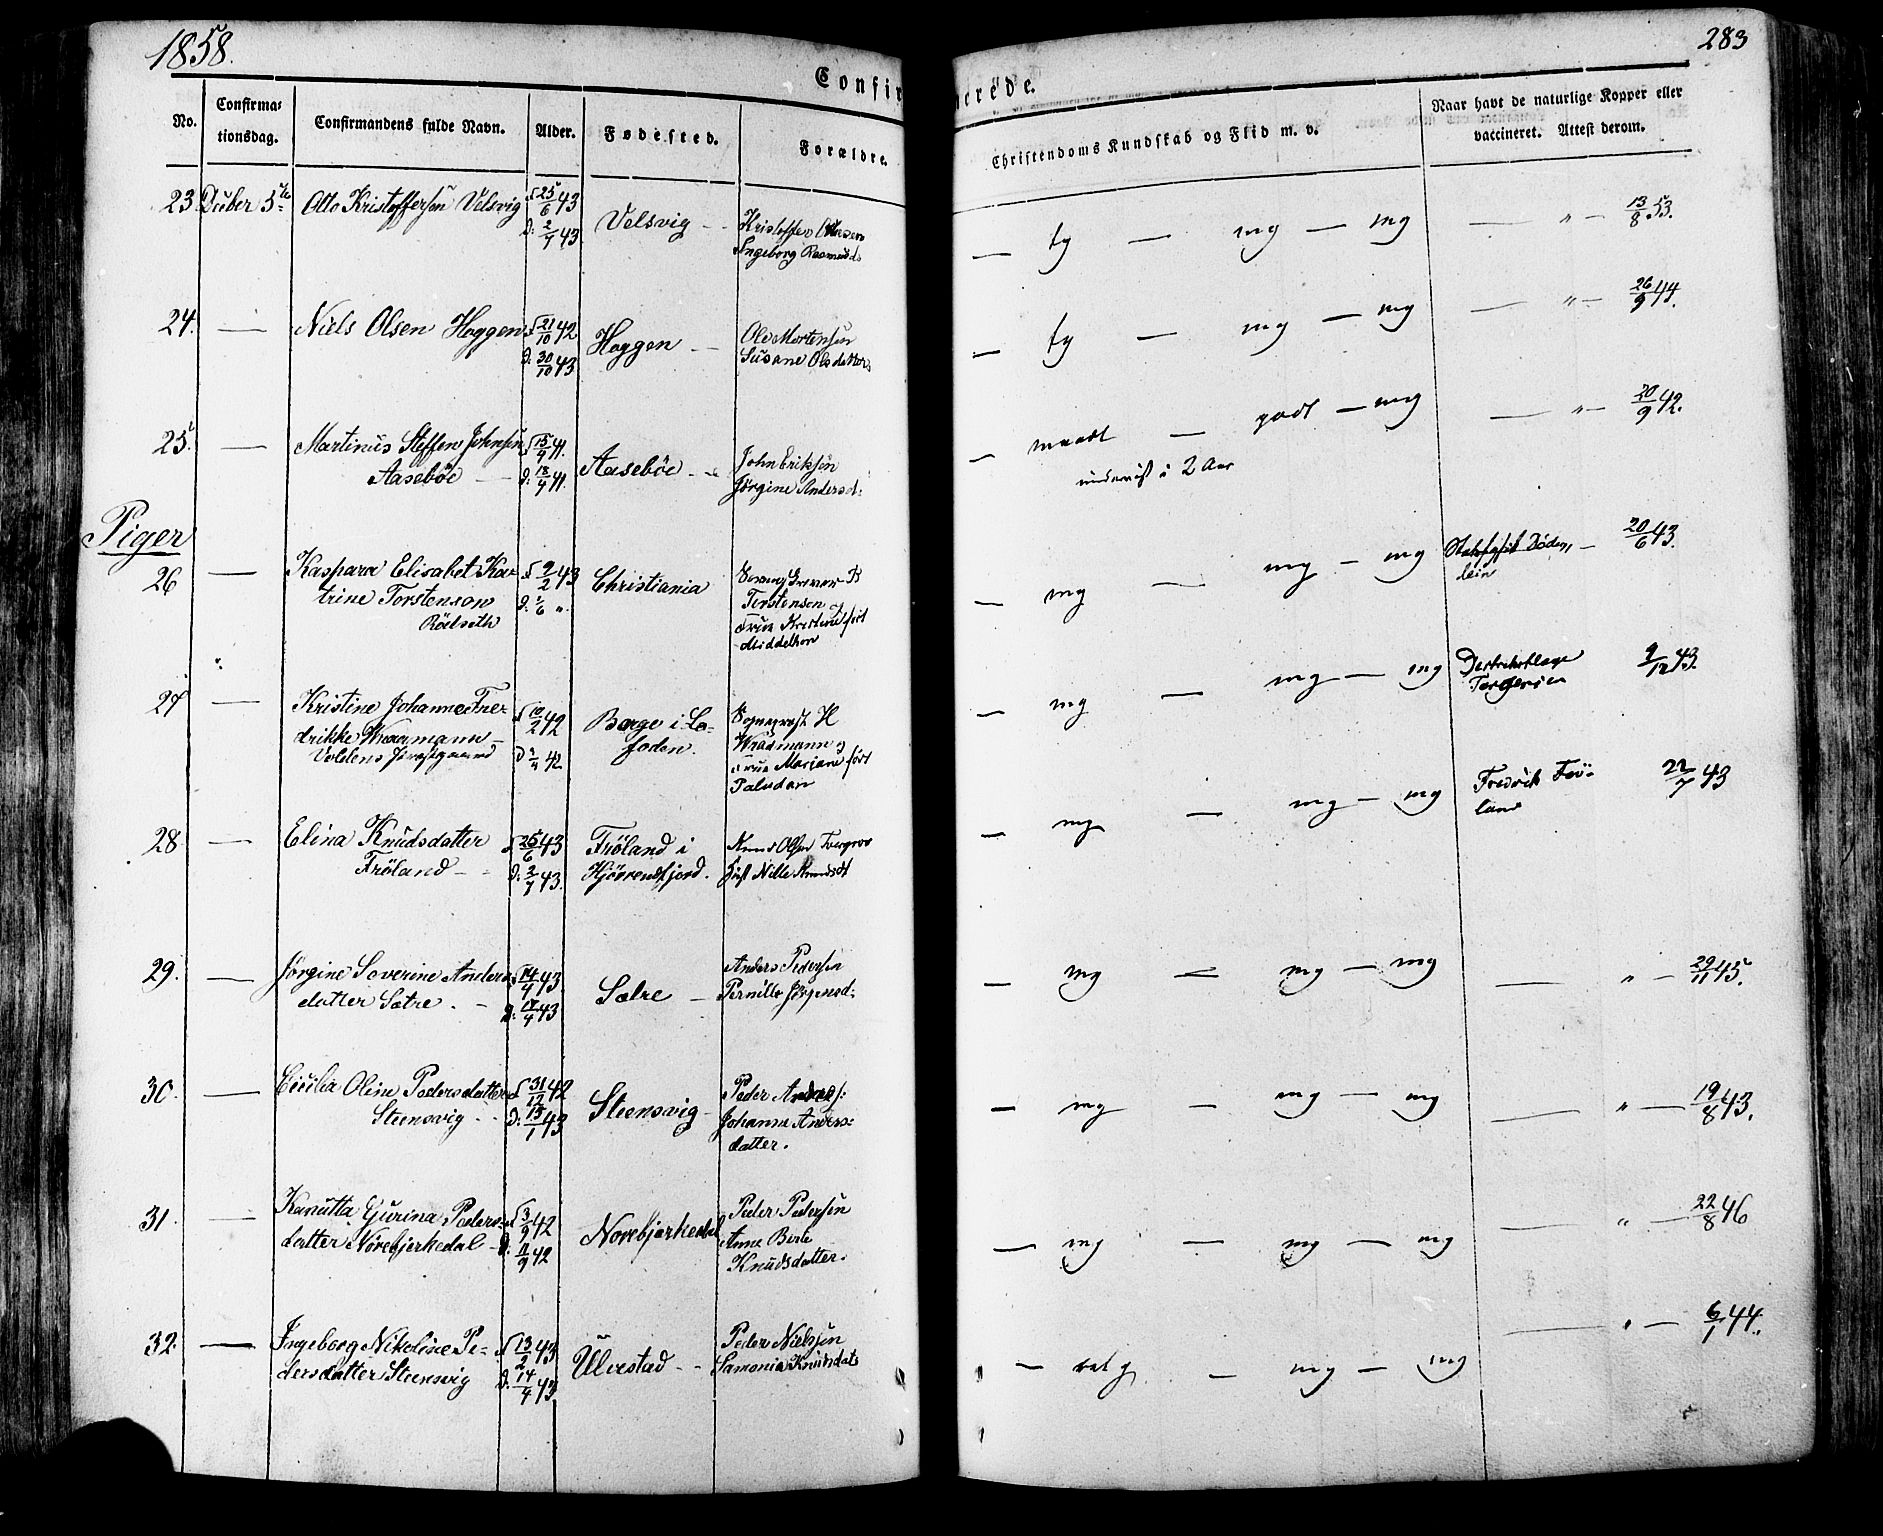 1858.
283
Confir
nerede.
No.
Confirma-
tionsdag.
Confirmandens fulde Navn.
Alder.
Fødested.
Forældre.
Christendoms Kundskab og Flid m. v.
Naar havt de naturlige Kopper eller
vaccineret. Attest derom.
23
Otto Kristoffersen Velsvig
f 25/6 43
d. 2/7 43
Velsvig
Kristoffer
Ingeborg Rasmusd.
— tg — mg — mg
— " — 13/8 53.
24.
Niels Olsen Haggen
f 21/10 42
d. 30/10 43
Haggen
Ole Mortensen
Susane Olsdatter
— tg — mg — mg
— " — 26/9 44.
25.
Martinus Steffen Johnsen
Aasebøe
f 15/9 41.
d. 18/9 41.
Aasebøe
John Eriksen
Jørgine Andersd.
— maadl — godt — mg
undervist i 2 Aar
— " — 20/9 42.
Piger
26
Kaspara Elisabet Ka-
trine Torstenson
Rødseth
f 9/2 43
d. 1/6 "
Christiania
Torstensen og
Frue Kristine født
Middelthon
— mg — mg — mg
20/6 43.
27
Kristine Johanne Fre-
drikke Wraamann
Voldens Præstgaard
f 10/2 42
d 1/4 42
Borge i Lo-
foden.
Sognepræst H
Wraamann og
Frue Mariane født
Paludan
— mg — mg — mg
Distriktslæge
9/12 43.
28
Elina Knudsdatter
Frøland
f 25/6 43
d. 2/7 43.
Frøland i
Hjørendfjord.
— mg — mg — mg
Fredrik Frø-
land
22/7 43
29.
Jørgine Severine Anders
datter Sætre.
f 14/4 43.
d. 17/4 43
Sætre
Anders Pedersen
Pernille Jørgensd.
— mg — mg — mg
— " — 29/11 45.
30.
Cicilia Oline Pedersdatter
Steensvig
f 31/12 42
d. 15/1 43
Steensvig
Peder Anders.
Johanne Anders-
datter.
— mg — mg — mg
— " — 19/8 43.
31.
Kanutta Gurina Peders-
datter Nørebjerkedal
f 3/9 42
d. 11/9 42
Norebjerkedal
Peder Pedersen
Anne Berte
Knudsdatter.
— mg — mg — mg
— " — 22/8 46
32.
Ingeborg Nikoline Pe-
dersdatter Steensvig
f 13/2 43
d. 14/4 43
Ulvestad
Peder Nielsen
Lamonia Knudsdat.
— mg — mg
— " — 6/1 44.